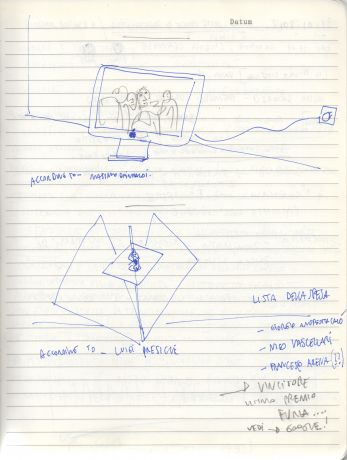 Datum
ACCORDING TO - MASSIMO GRIMALDI.
ACCORDING TO - LUIGI PRESICCE
LISTA DELLA SPESA
- GIORGIO ANDREOTTA CALÒ
- NICO VASCELLARI
- FRANCESCO ARENA (!?)
→ VINCITORE
ULTIMO PREMIO
FURLA....!
VEDI → GOOGLE!